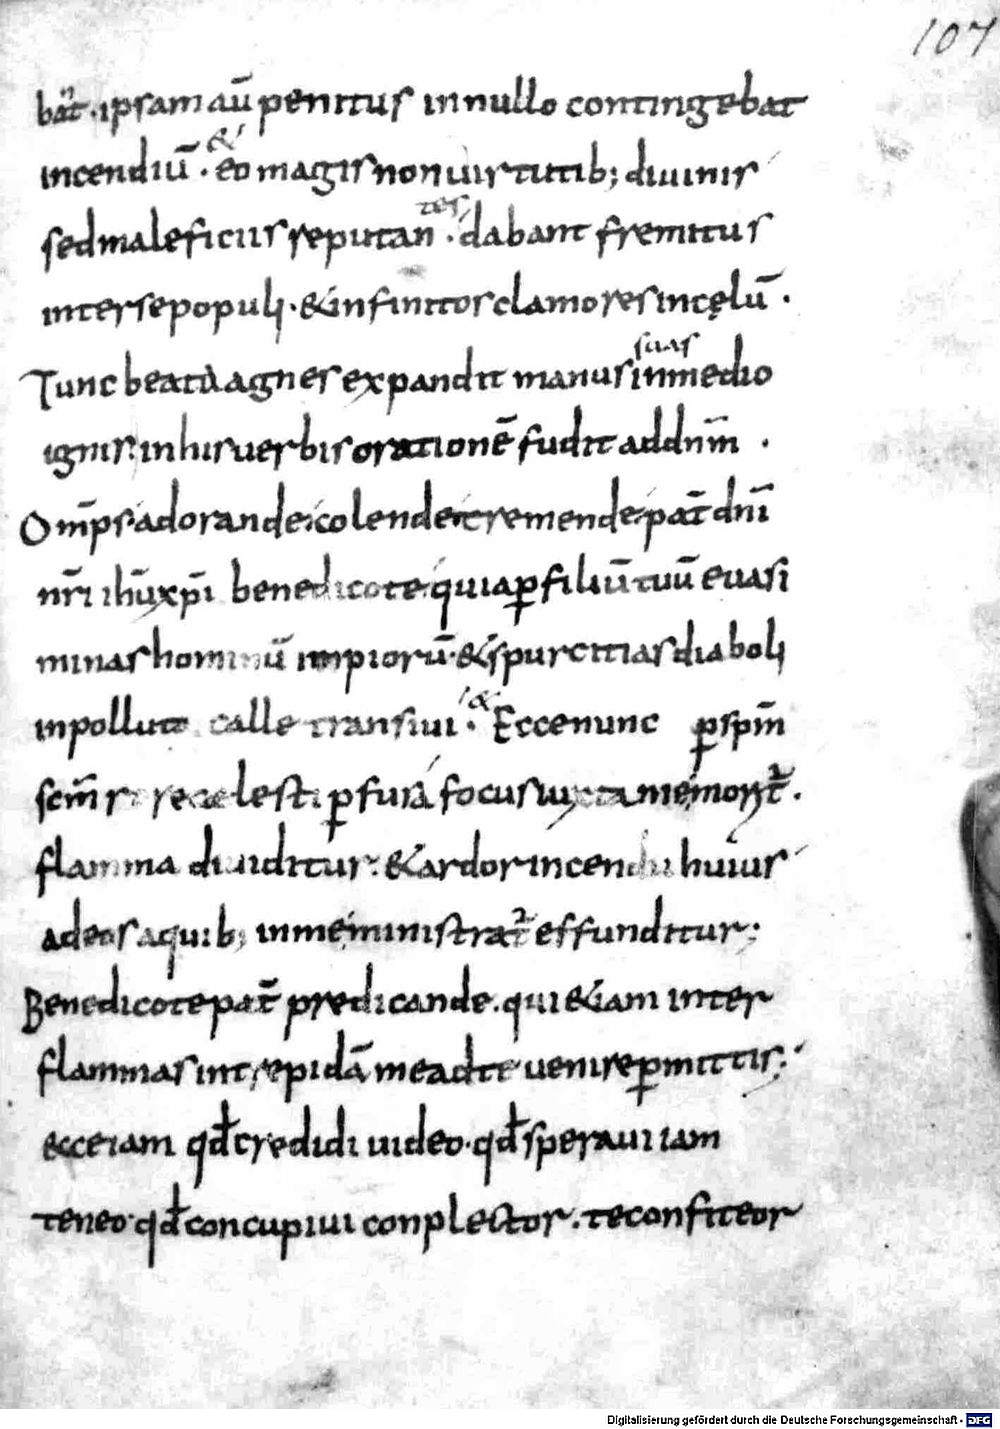 107
bat̄. ipsam aū penitus in nullo contingebat
incendiū. & eo magis non uirtutib; diuinis
sed maleficiis reputantes. dabant fremitus
inter se populi. & infinitos clamores in cęlū.
Tunc beata agnes expandit manus suas in medio
ignis. in his uerbis orationē fudit ad dnm̄.
Omp̄s adorande. colende. tremende. pat̄ dnī
nr̄i ihū xpī benedico te. quia ꝑ filiū tuū euasi
minas hominū impiorū. & spurcitias diaboli
inpolluto calle transiui. & Ecce nunc ꝑ spm̄
scm̄ celesti ꝑfusa focus iuxta me morit̄.
flamma diuiditur. & ardor incendii huius
ad eos a quib; in me ministrat̄ effunditur;
Benedico te pat̄ predicande. qui & iam inter
flammas intrepidā me ad te uenire ꝑmittis;
ecce iam qd̄ credidi uideo. qd̄ speraui iam
teneo. qd̄ concupiui conplector. te confiteor
Digitalisierung gefördert durch die Deutsche Forschungsgemeinschaft - DFG